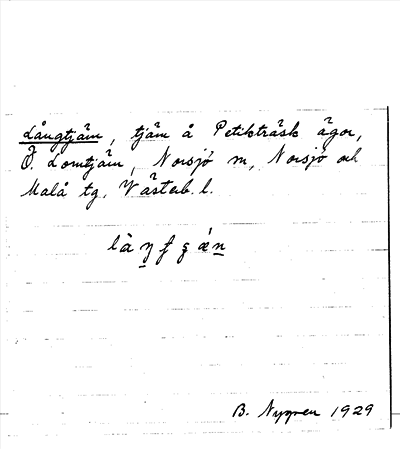 Långtjärn, tjärn å Petikträsk ägor,
Ö. Lomtjärn, Norsjö sn, Norsjö och
Malå tg, Västerb. l.
B. Nygren 1929